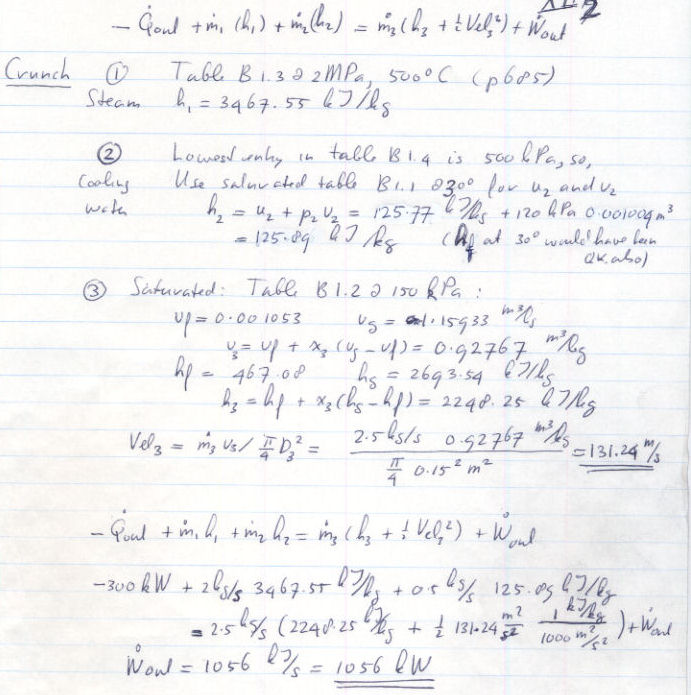 - Q̇out + ṁ₁ (h₁) + ṁ₂ (h₂) = ṁ₃ (h₃ + ½ Vel₃²) + Ẇout
Crunch ① Table B 1.3 @ 2MPa, 500°C (p685)
Steam h₁ = 3467.55 kJ/kg
② Lowest entry in table B 1.4 is 500 kPa, so,
Cooling Use saturated table B1.1 @30° for u₂ and v₂
water h₂ = u₂ + p₂ v₂ = 125.77 kJ/kg + 120 kPa 0.001004 m³
= 125.89 kJ/kg (hf at 30° would have been
OK also)
③ Saturated: Table B1.2 @ 150 kPa :
vf = 0.001053 vg = 1.15933 m³/kg
v₃ = vf + x₃ (vg - vf) = 0.92767 m³/kg
hf = 467.08 hg = 2693.54 kJ/kg
h₃ = hf + x₃ (hg - hf) = 2248.25 kJ/kg
Vel₃ = ṁ₃ v₃ / π/4 D₃² = 2.5 kg/s 0.92767 m³/kg / π/4 0.15² m² = 131.24 m/s
- Q̇out + ṁ₁ h₁ + ṁ₂ h₂ = ṁ₃ (h₃ + ½ Vel₃²) + Ẇout
-300 kW + 2 kg/s 3467.55 kJ/kg + 0.5 kg/s 125.89 kJ/kg
= 2.5 kg/s (2248.25 kJ/kg + ½ 131.24² m²/s² 1 kJ/kg / 1000 m²/s²) + Ẇout
Ẇout = 1056 kJ/s = 1056 kW